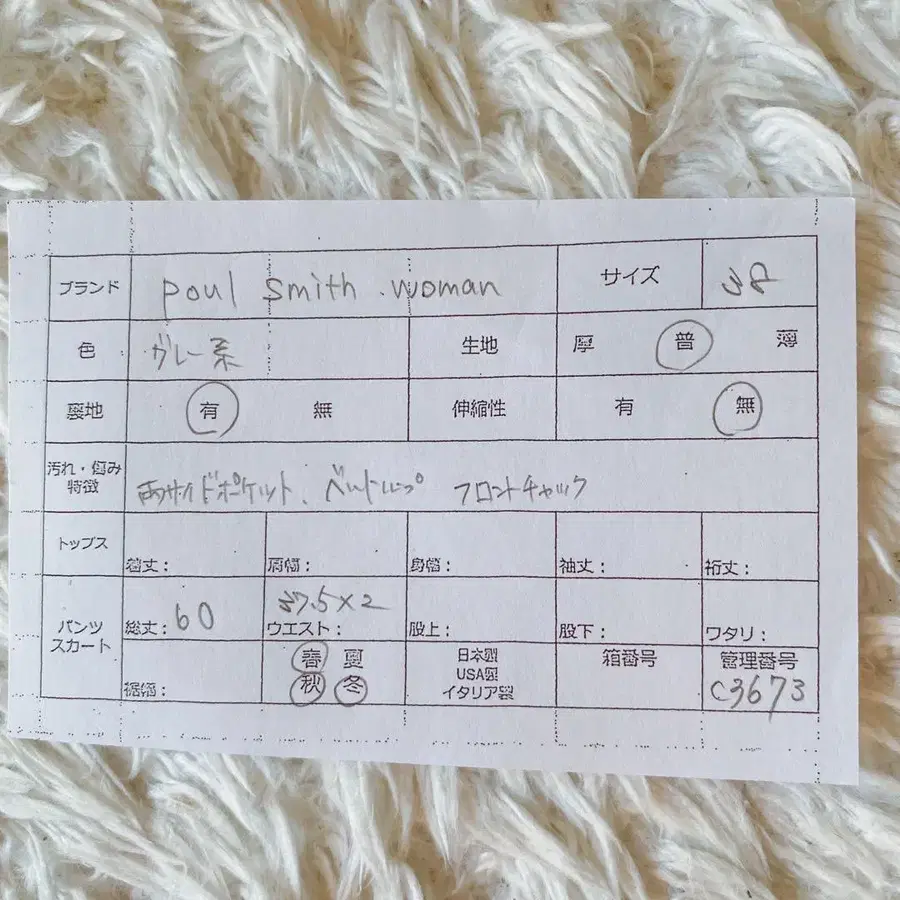 ブランド poul smith.woman サイズ 38
色 グレー系 生地 厚 普 薄
裏地 有 無 伸縮性 有 無
汚れ・傷み
特徴 両サイドポケット、ベルトループ フロントチャック
トップス 着丈: 肩幅: 身幅: 袖丈: 裄丈:
パンツ
スカート 総丈:60 ウエスト:37.5×2 股上: 股下: ワタリ:
裾幅: 春 夏 秋 冬
日本製
USA製
イタリア製
箱番号
管理番号
C3673